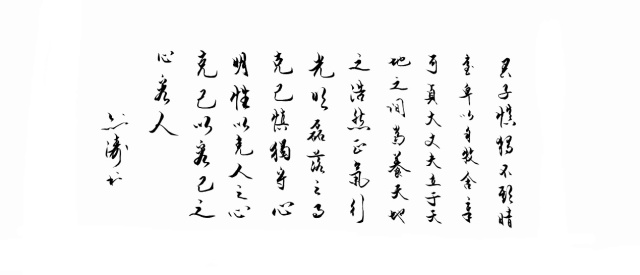 君子慎獨不欺暗
室卑以自牧含章
可貞大丈夫立于天
地之间當養天地
之浩然正氣行
光明磊落之事
克己慎獨守心
明性以克人之心
克己以容己之
心容人